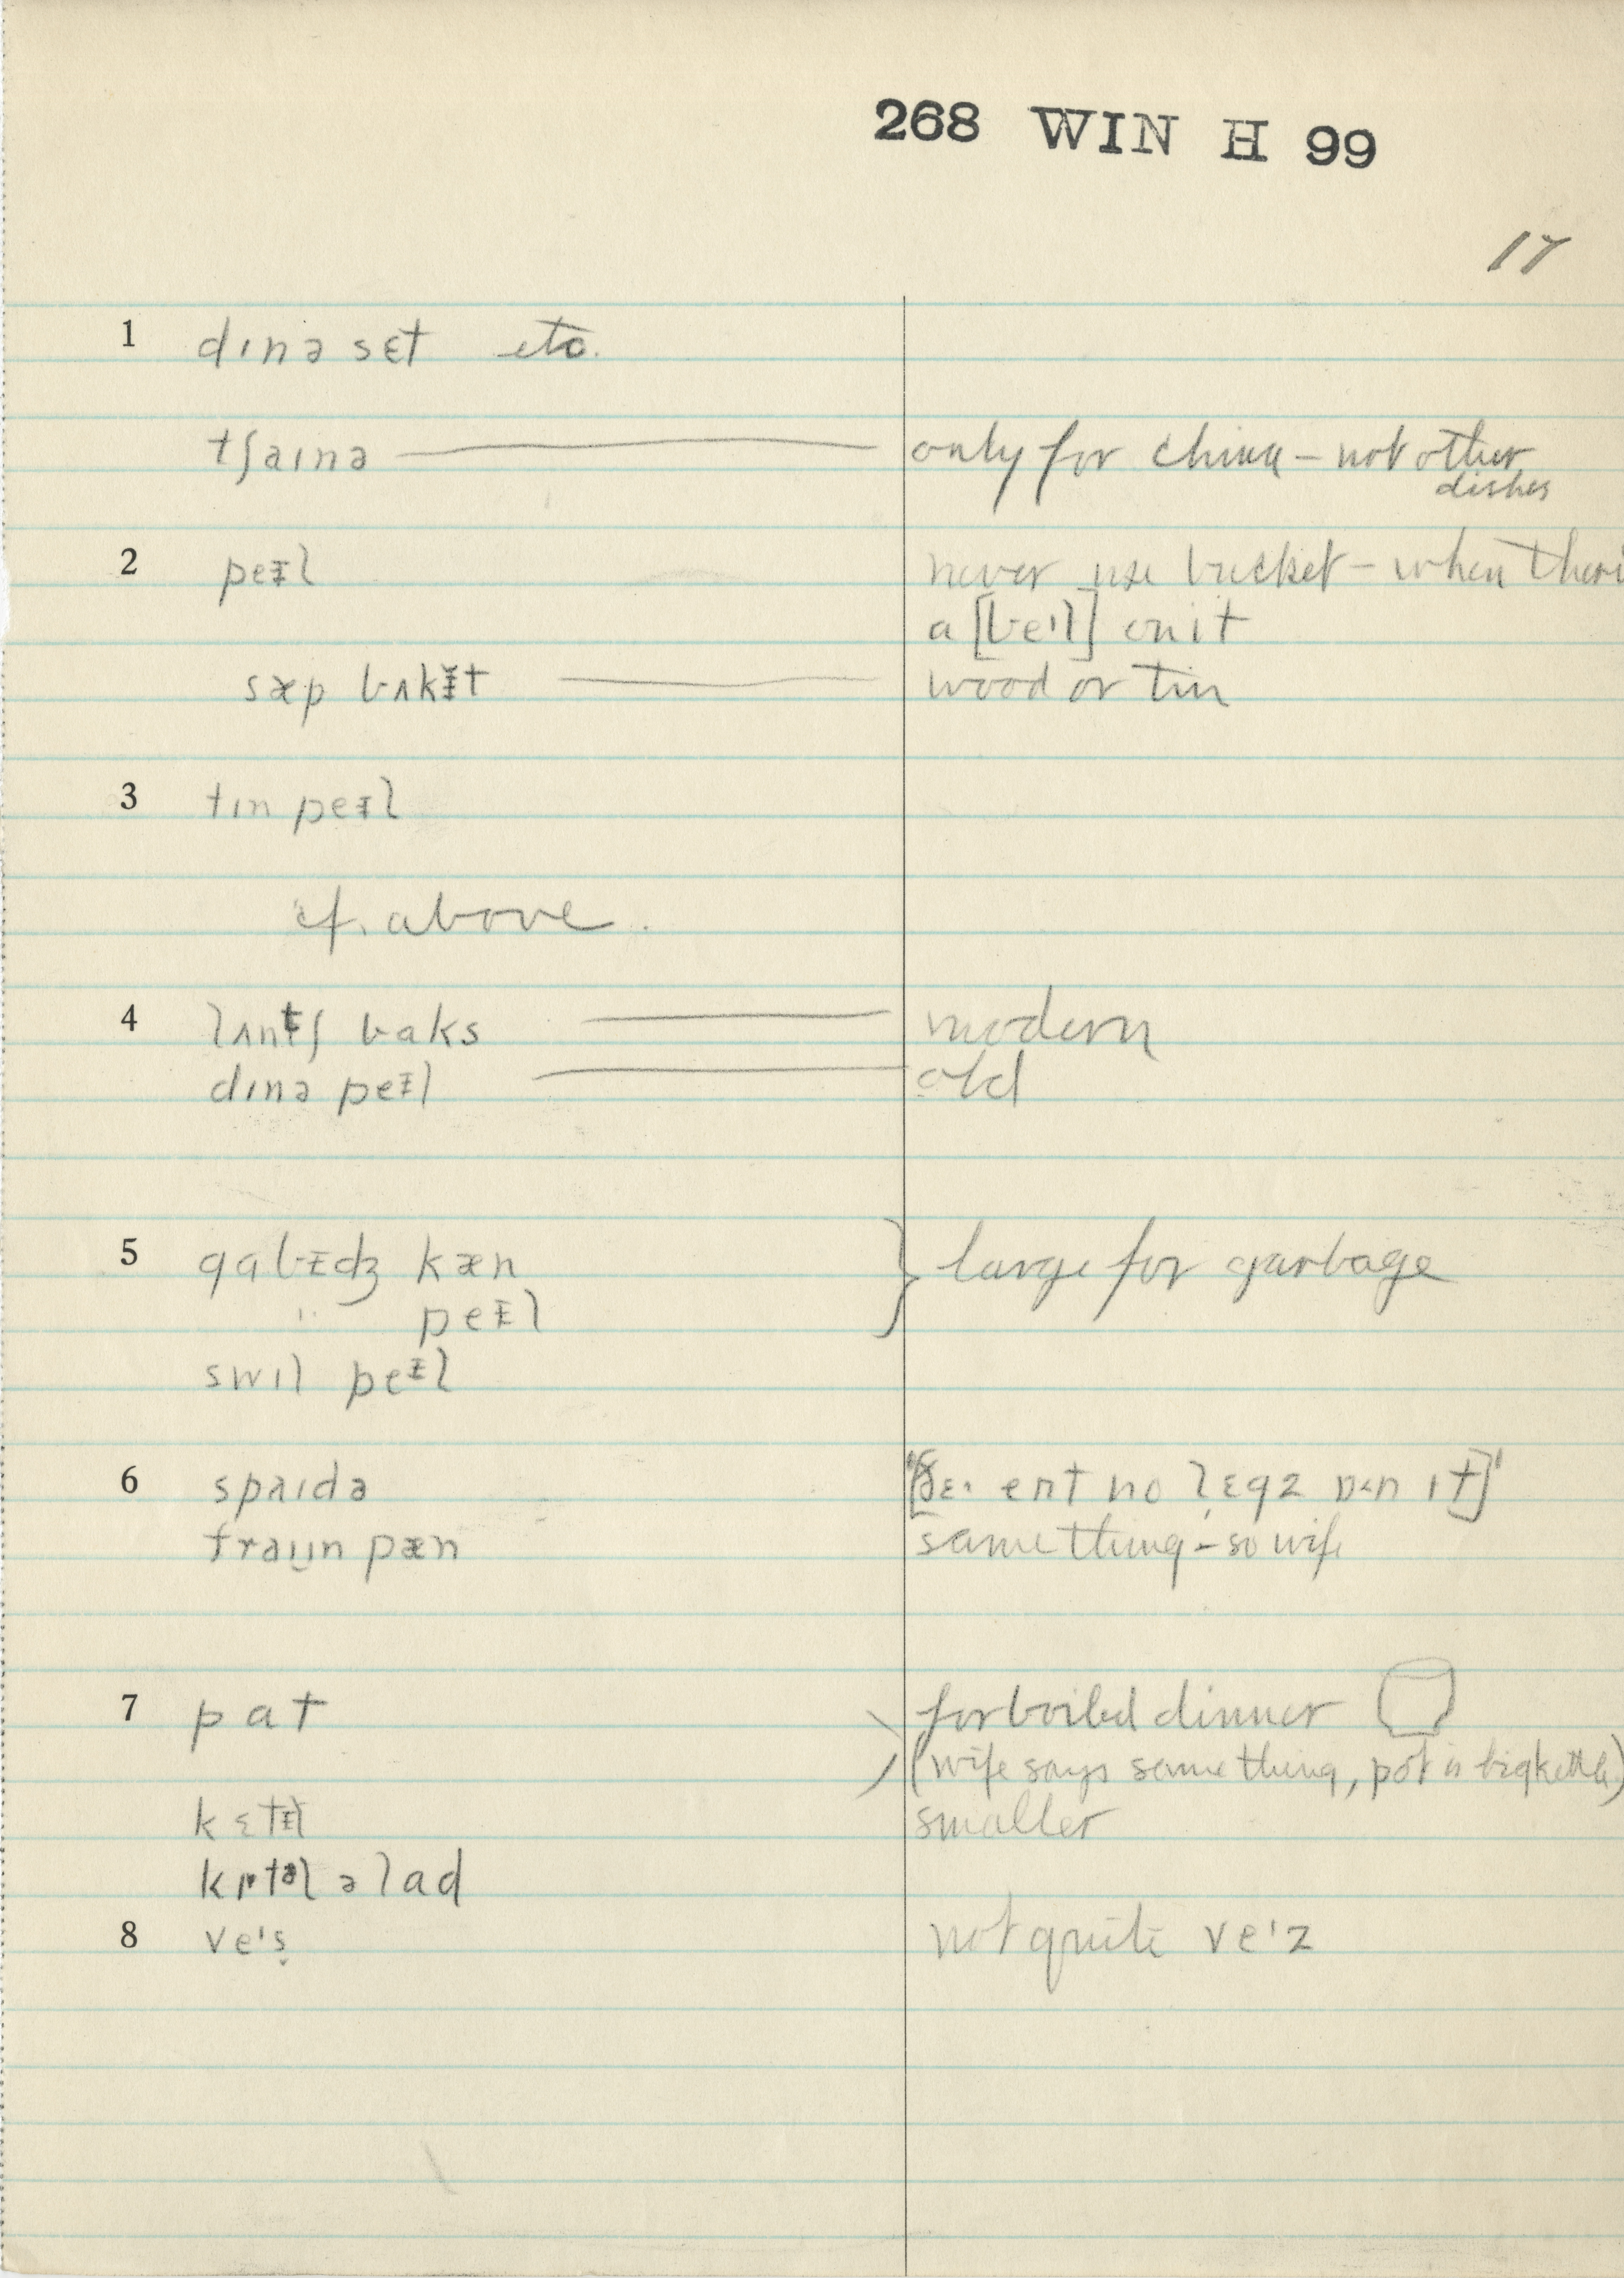 268 WIN H 99
17
1 dɪnə sɛt etc.
tʃaɪnə — only for china – not other
dishes
2 peᵻl never use bucket – when there
a [beɪl] on it
sæp bʌkᵻt — wood or tin
3 tɪn peᵻl
cf. above.
4 lʌntʃ baks — modern
dɪnə peᵻl — old
5 gabᵻdʒ kæn } large for garbage
" peᵻl
swɪl peᵻl
6 spaɪdə no lɛgz ɪt]'
fraɪn pæn same thing – so wife
7 pat for boiled dinner
(wife says same thing, pot is big kettle)
kɛtᵻl smaller
əlad
8 veɪs̬ not quite veɪz